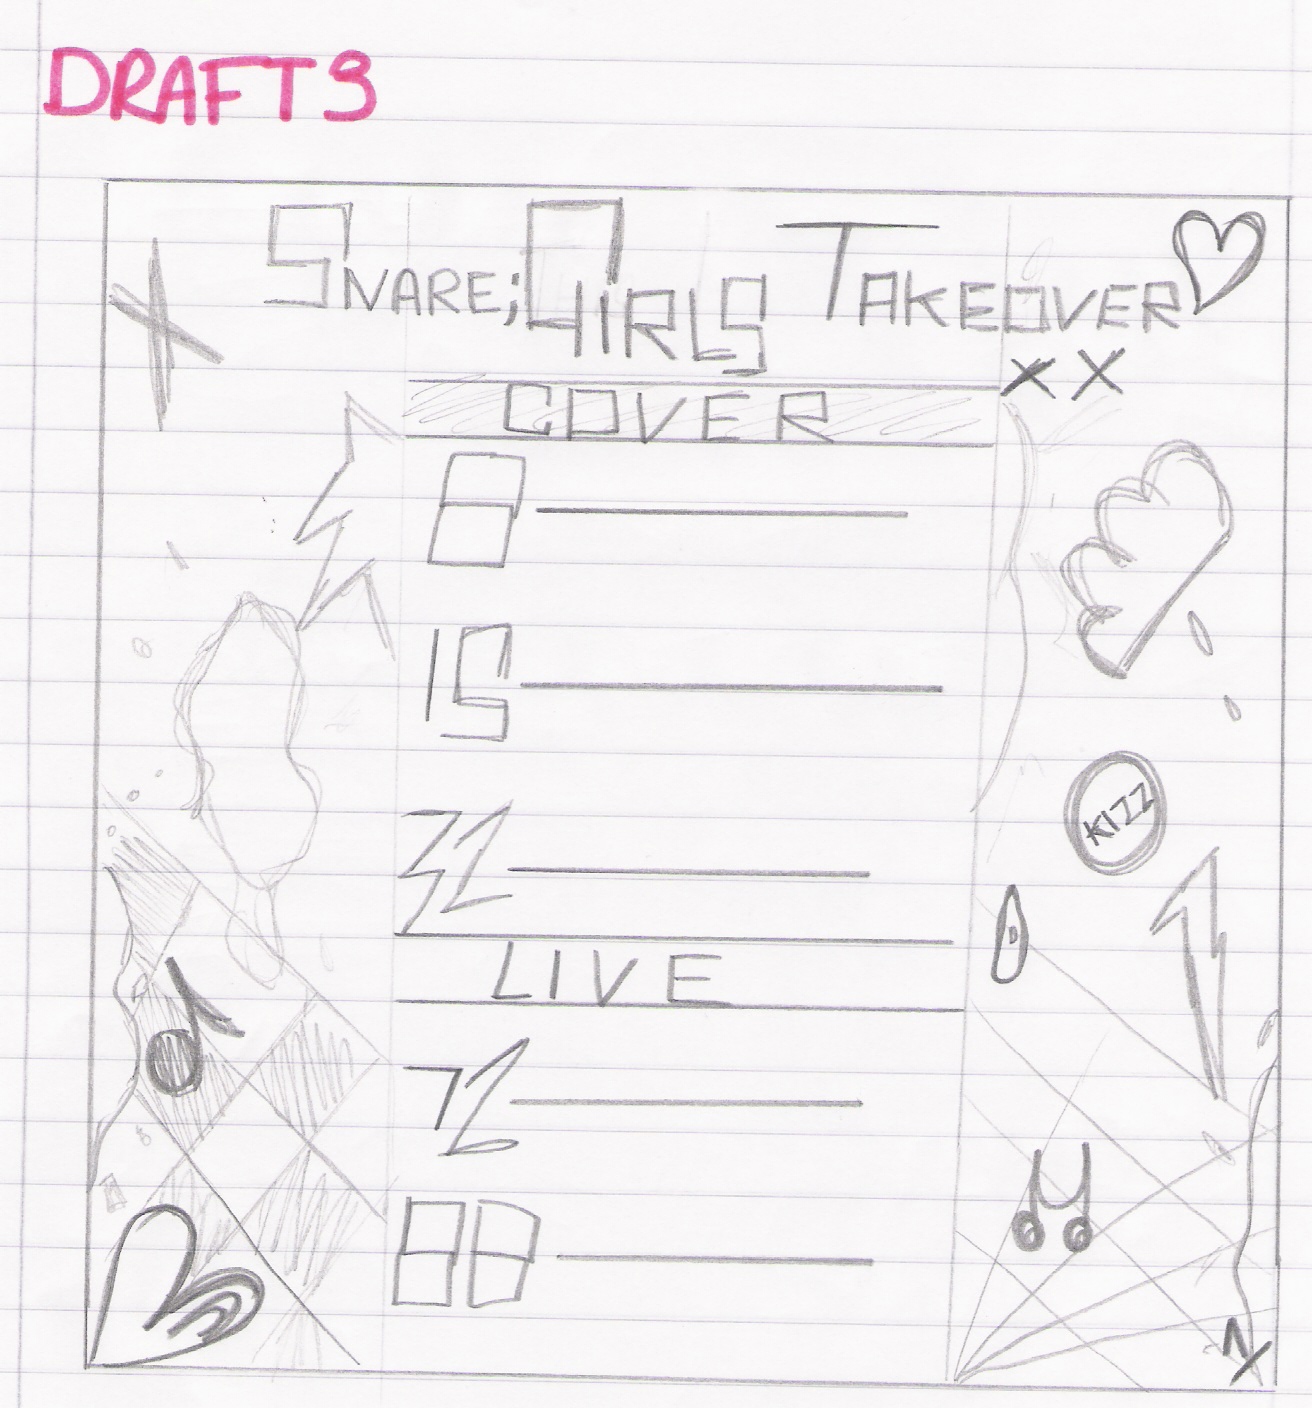 DRAFT 3
SNARE; GIRLS TAKEOVER
XX
COVER
8
15
32
KIZZ
LIVE
72
88